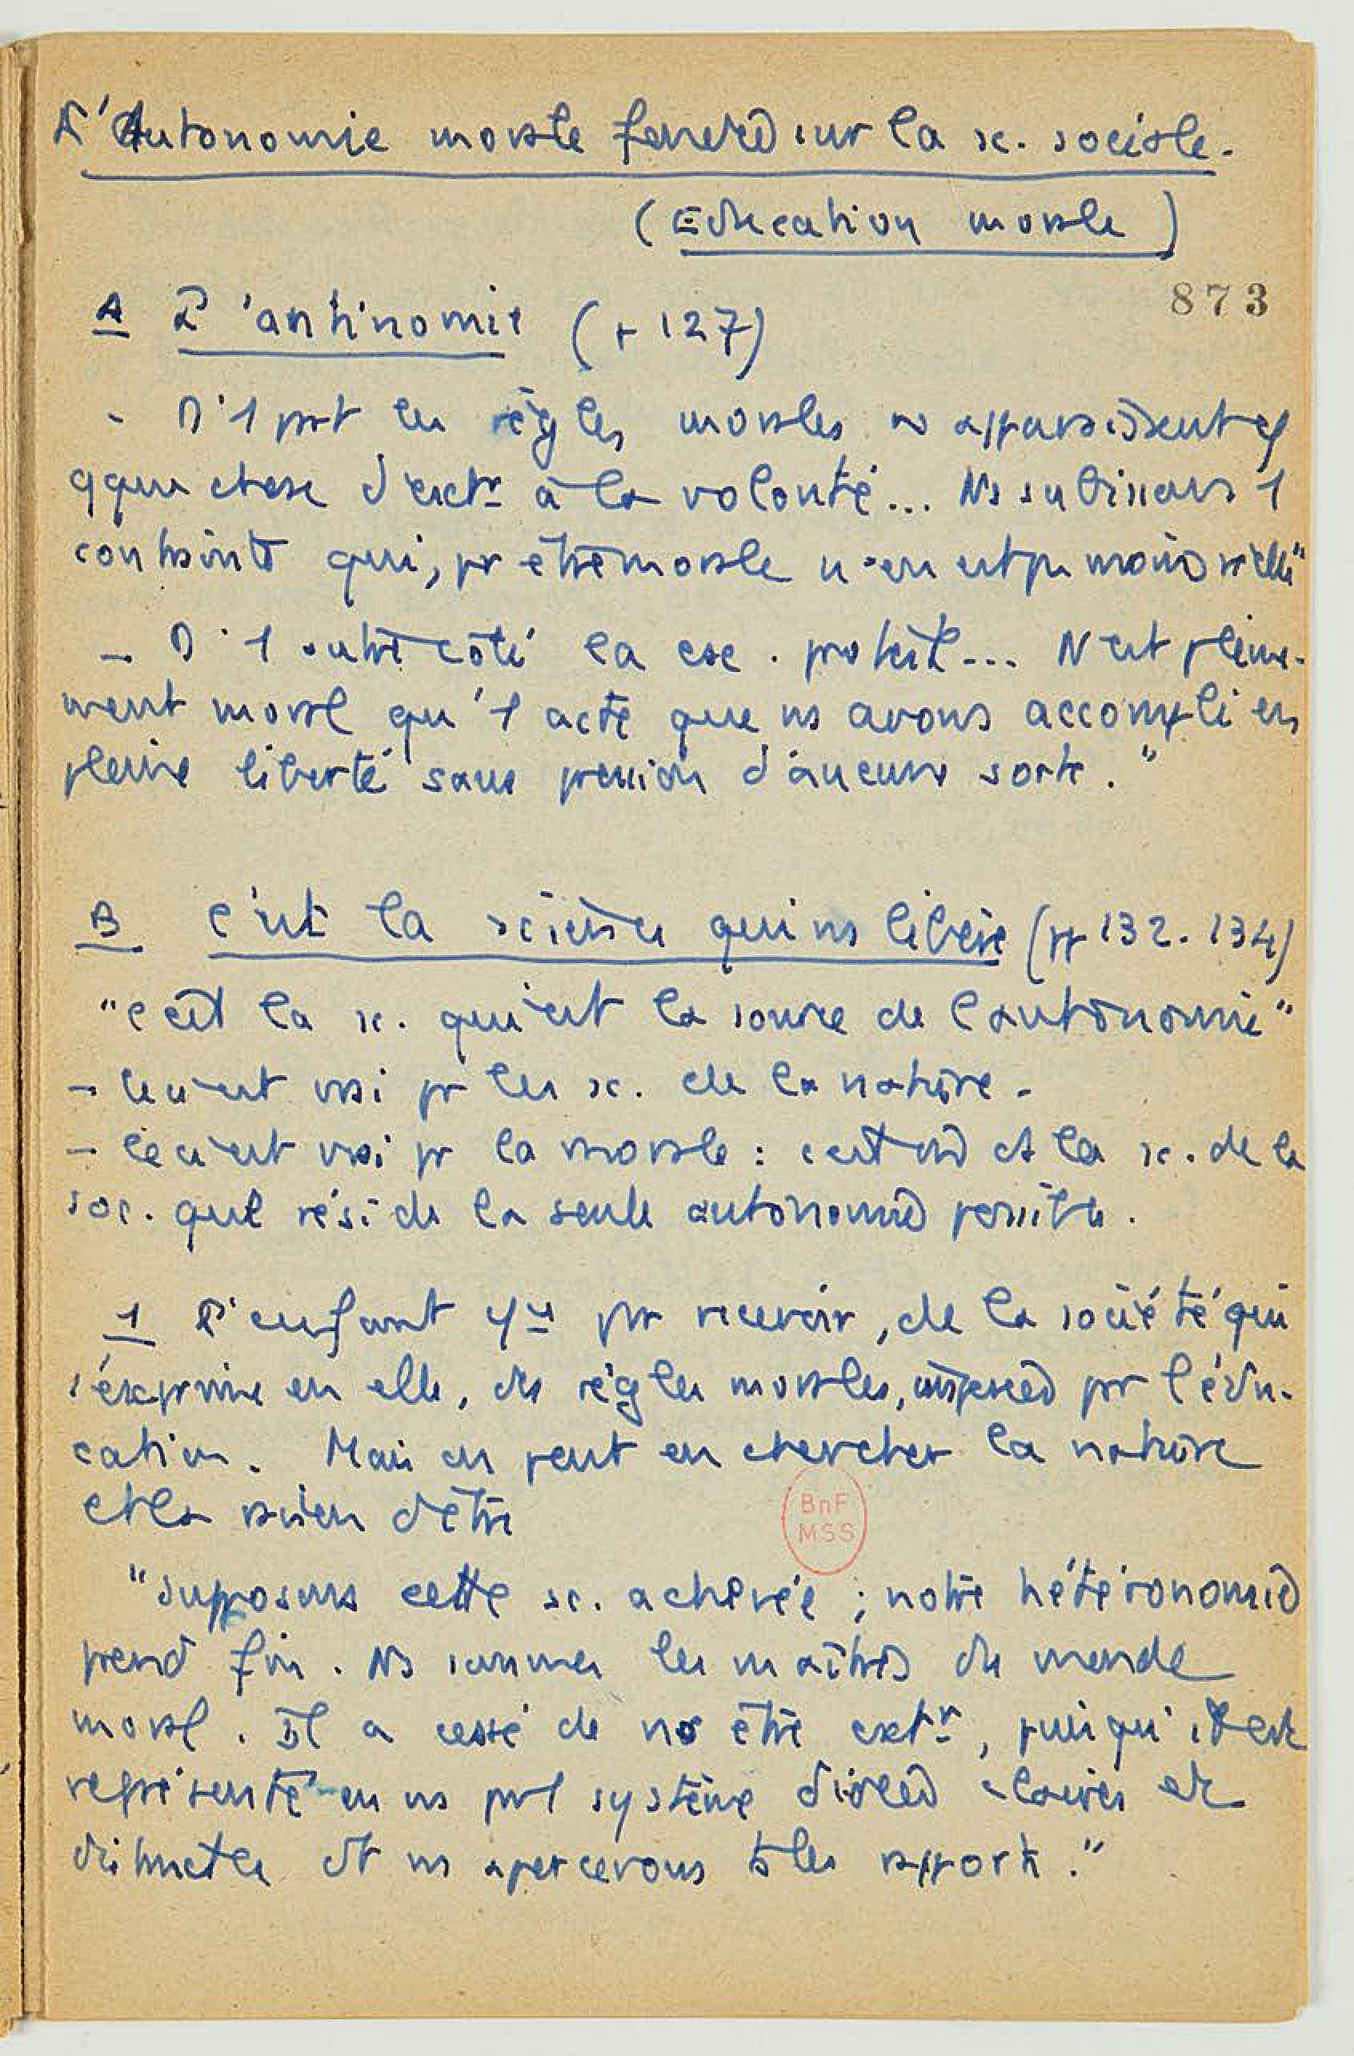 L'Autonomie morale fondée sur la sc. sociale.
(Education morale)
873
A L'antinomie (p 127)
- D'1 part les règles morales ns apparaissent cō
qque chose d'extr à la volonté... Ns subissons 1
contrainte qui, pr être morale n'en est pas moins réelle"
- D'1 autre côté la csc. proteste... N'est pleine-
ment moral qu'1 acte que ns avons accompli en
pleine liberté sans pression d'aucune sorte."
B C'est la science qui ns libère (pp 132-134)
"C'est la sc. qui est la source de l'autonomie"
- Ceci est vrai pr les sc. de la nature.
- Ceci est vrai pr la morale : c'est ds et la sc. de la
soc. que réside la seule autonomie possible.
1 L'enfant par recevoir, de la société qui
s'exprime en elle, des règles morales, imposées par l'édu-
cation. Mais on peut en chercher la nature
et la raison d'être
"Supposons cette sc. achevée ; notre hétéronomie
prend fin. Ns sommes les maîtres du monde
moral. Il a cessé de nos être extr, puisqu'il est
représenté en ns par 1 système d'idées claires et
distinctes dt ns apercevons ts les rapports."
BnF
MSS